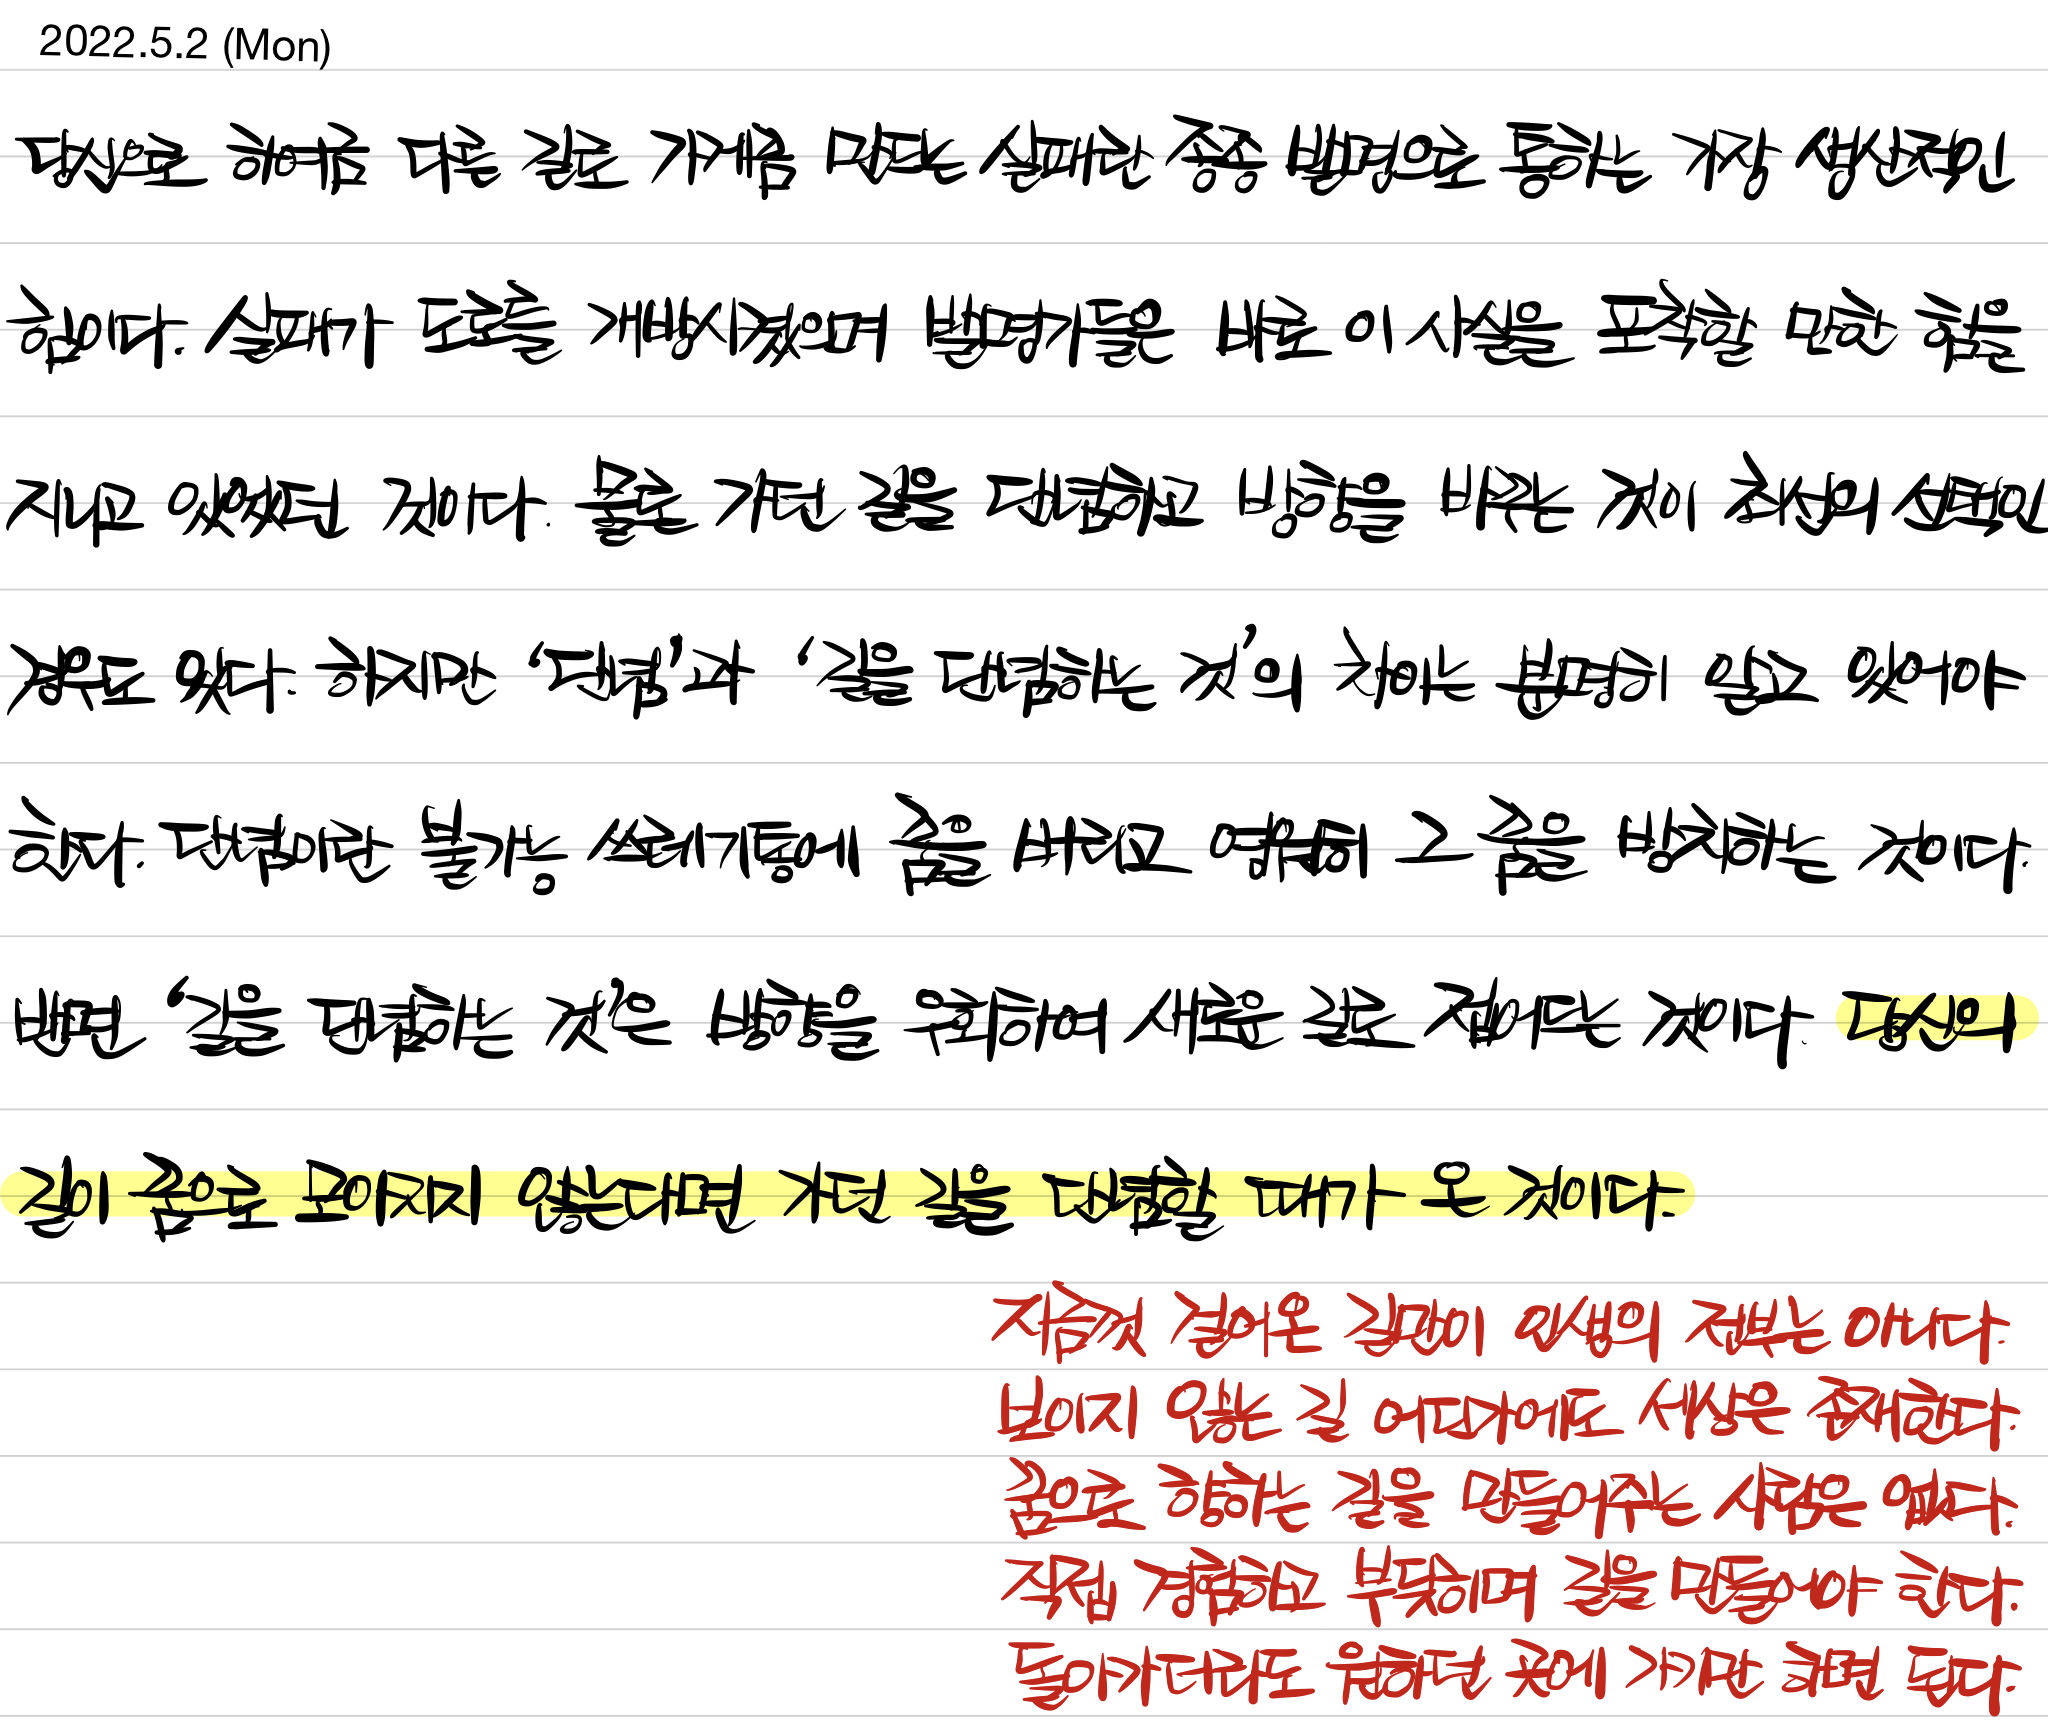 2022.5.2 (Mon)
당신으로 하여금 다른 길로 가게끔 만드는 실패란 종종 발명으로 통하는 가장 생산적인
힘이다. 실패가 도로들을 개방시켰으며 발명가들은 바로 이 사실을 포착할 만한 힘을
지니고 있었던 것이다. 물론 가던 길을 단념하고 방향을 바꾸는 것이 최선의 선택인
경우도 있다. 하지만 ‘단념’과 ‘길을 단념하는 것’의 차이는 분명히 알고 있어야
한다. 단념이란 불가능 쓰레기통에 꿈을 버리고 영원히 그 꿈을 방치하는 것이다.
반면 ‘길을 단념하는 것’은 방향을 우회하여 새로운 길로 접어드는 것이다. 당신의
길이 꿈으로 모아지지 않는다면 가던 길을 단념할 때가 온 것이다.
지금껏 걸어온 길만이 인생의 전부는 아니다.
보이지 않는 길 어딘가에도 세상은 존재한다.
꿈으로 향하는 길을 만들어주는 사람은 없다.
직접 경험하고 부딪히며 길을 만들어야 한다.
돌아가더라도 원하던 곳에 가기만 하면 된다.